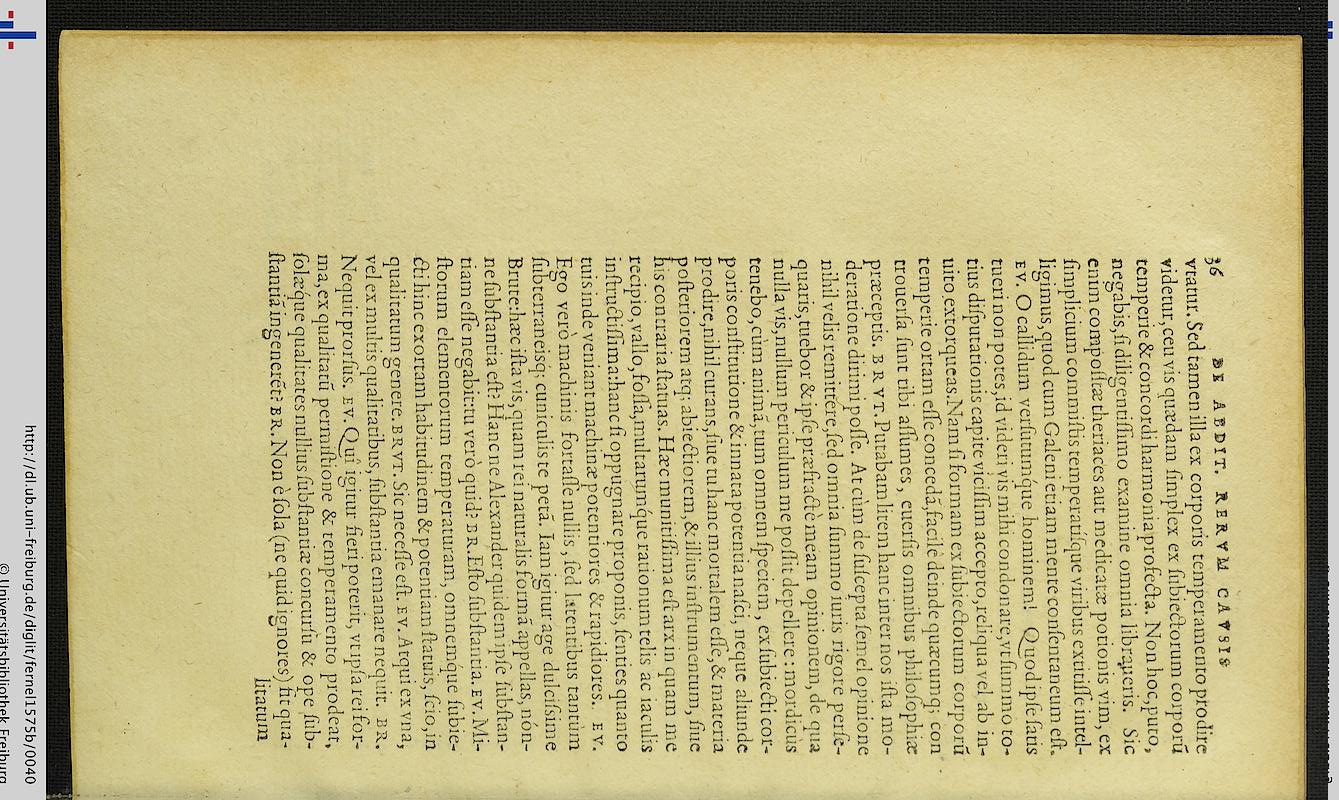 36 DE ABDIT. RERVM CAVSIS
vtatur. Sed tamen illa ex corporis temperamento prodire
videtur, ceu vis quædam simplex ex subiectorum corporũ
temperie & concordi harmonia profecta. Non hoc, puto,
negabis, si diligentissimo examine omnia libraueris. Sic
enim compositæ theriaces aut medicatæ potionis vim, ex
simplicium commistis temperatísque viribus extitisse intel-
ligimus, quod cum Galeni etiam mente consentaneum est.
EV. O callidum versutumque hominem! Quod ipse satis
tueri non potes, id videri vis mihi condonare, vt summo to-
tius disputationis capite vicissim accepto, reliqua vel ab in-
uito extorqueas. Nam si formam ex subiectorum corporũ
temperie ortam esse concedã, facilè deinde quæcumq; con
trouersa sunt tibi assumes, euersis omnibus philosophiæ
præceptis. BRVT. Putabam litem hanc inter nos ista mo-
deratione dirimi posse. At cùm de suscepta semel opinione
nihil velis remittere, sed omnia summo iuris rigore perse-
quaris, tuebor & ipse præfractè meam opinionem, de qua
nulla vis, nullum periculum me possit depellere: mordicus
tenebo, cùm animã, tum omnem speciem, ex subiecti cor-
poris constitutione & innata potentia nasci, neque aliunde
prodire, nihil curans, siue tu hanc mortalem esse, & materia
posteriorem atq; abiectiorem, & illius instrumentum, siue
his contraria statuas. Hæc munitissima est arx in quam me
recipio, vallo, fossa, multarúmque rationum telis ac iaculis
instructissima: hanc si oppugnare proponis, senties quanto
tuis inde veniant machinæ potentiores & rapidiores. EV.
Ego verò machinis fortasse nullis, sed latentibus tantùm
subterraneisq; cuniculis te petã. Iam igitur age dulcissime
Brute: hæc ista vis, quam rei naturalis formã appellas, nón-
ne substantia est? Hanc ne Alexander quidem ipse substan-
tiam esse negabit: tu verò quid? BR. Esto substantia. EV. Mi-
storum elementorum temperaturam, omnemque subie-
cti hinc exortam habitudinem & potentiam statuis, scio, in
qualitatum genere. BRVT. Sic necesse est. EV. Atqui ex vna,
vel ex multis qualitatibus, substantia emanare nequit. BR.
Nequit prorsus. EV. Quî igitur fieri poterit, vt ipsa rei for-
ma, ex qualitatũ permistione & temperamento prodeat,
solæque qualitates nullius substantiæ concursu & ope sub-
stantiã ingenerẽt? BR. Non è sola (ne quid ignores) fit qua-
litatum
http://dl.ub.uni-freiburg.de/diglit/fernel1575b/0040
© Universitätsbibliothek Freiburg